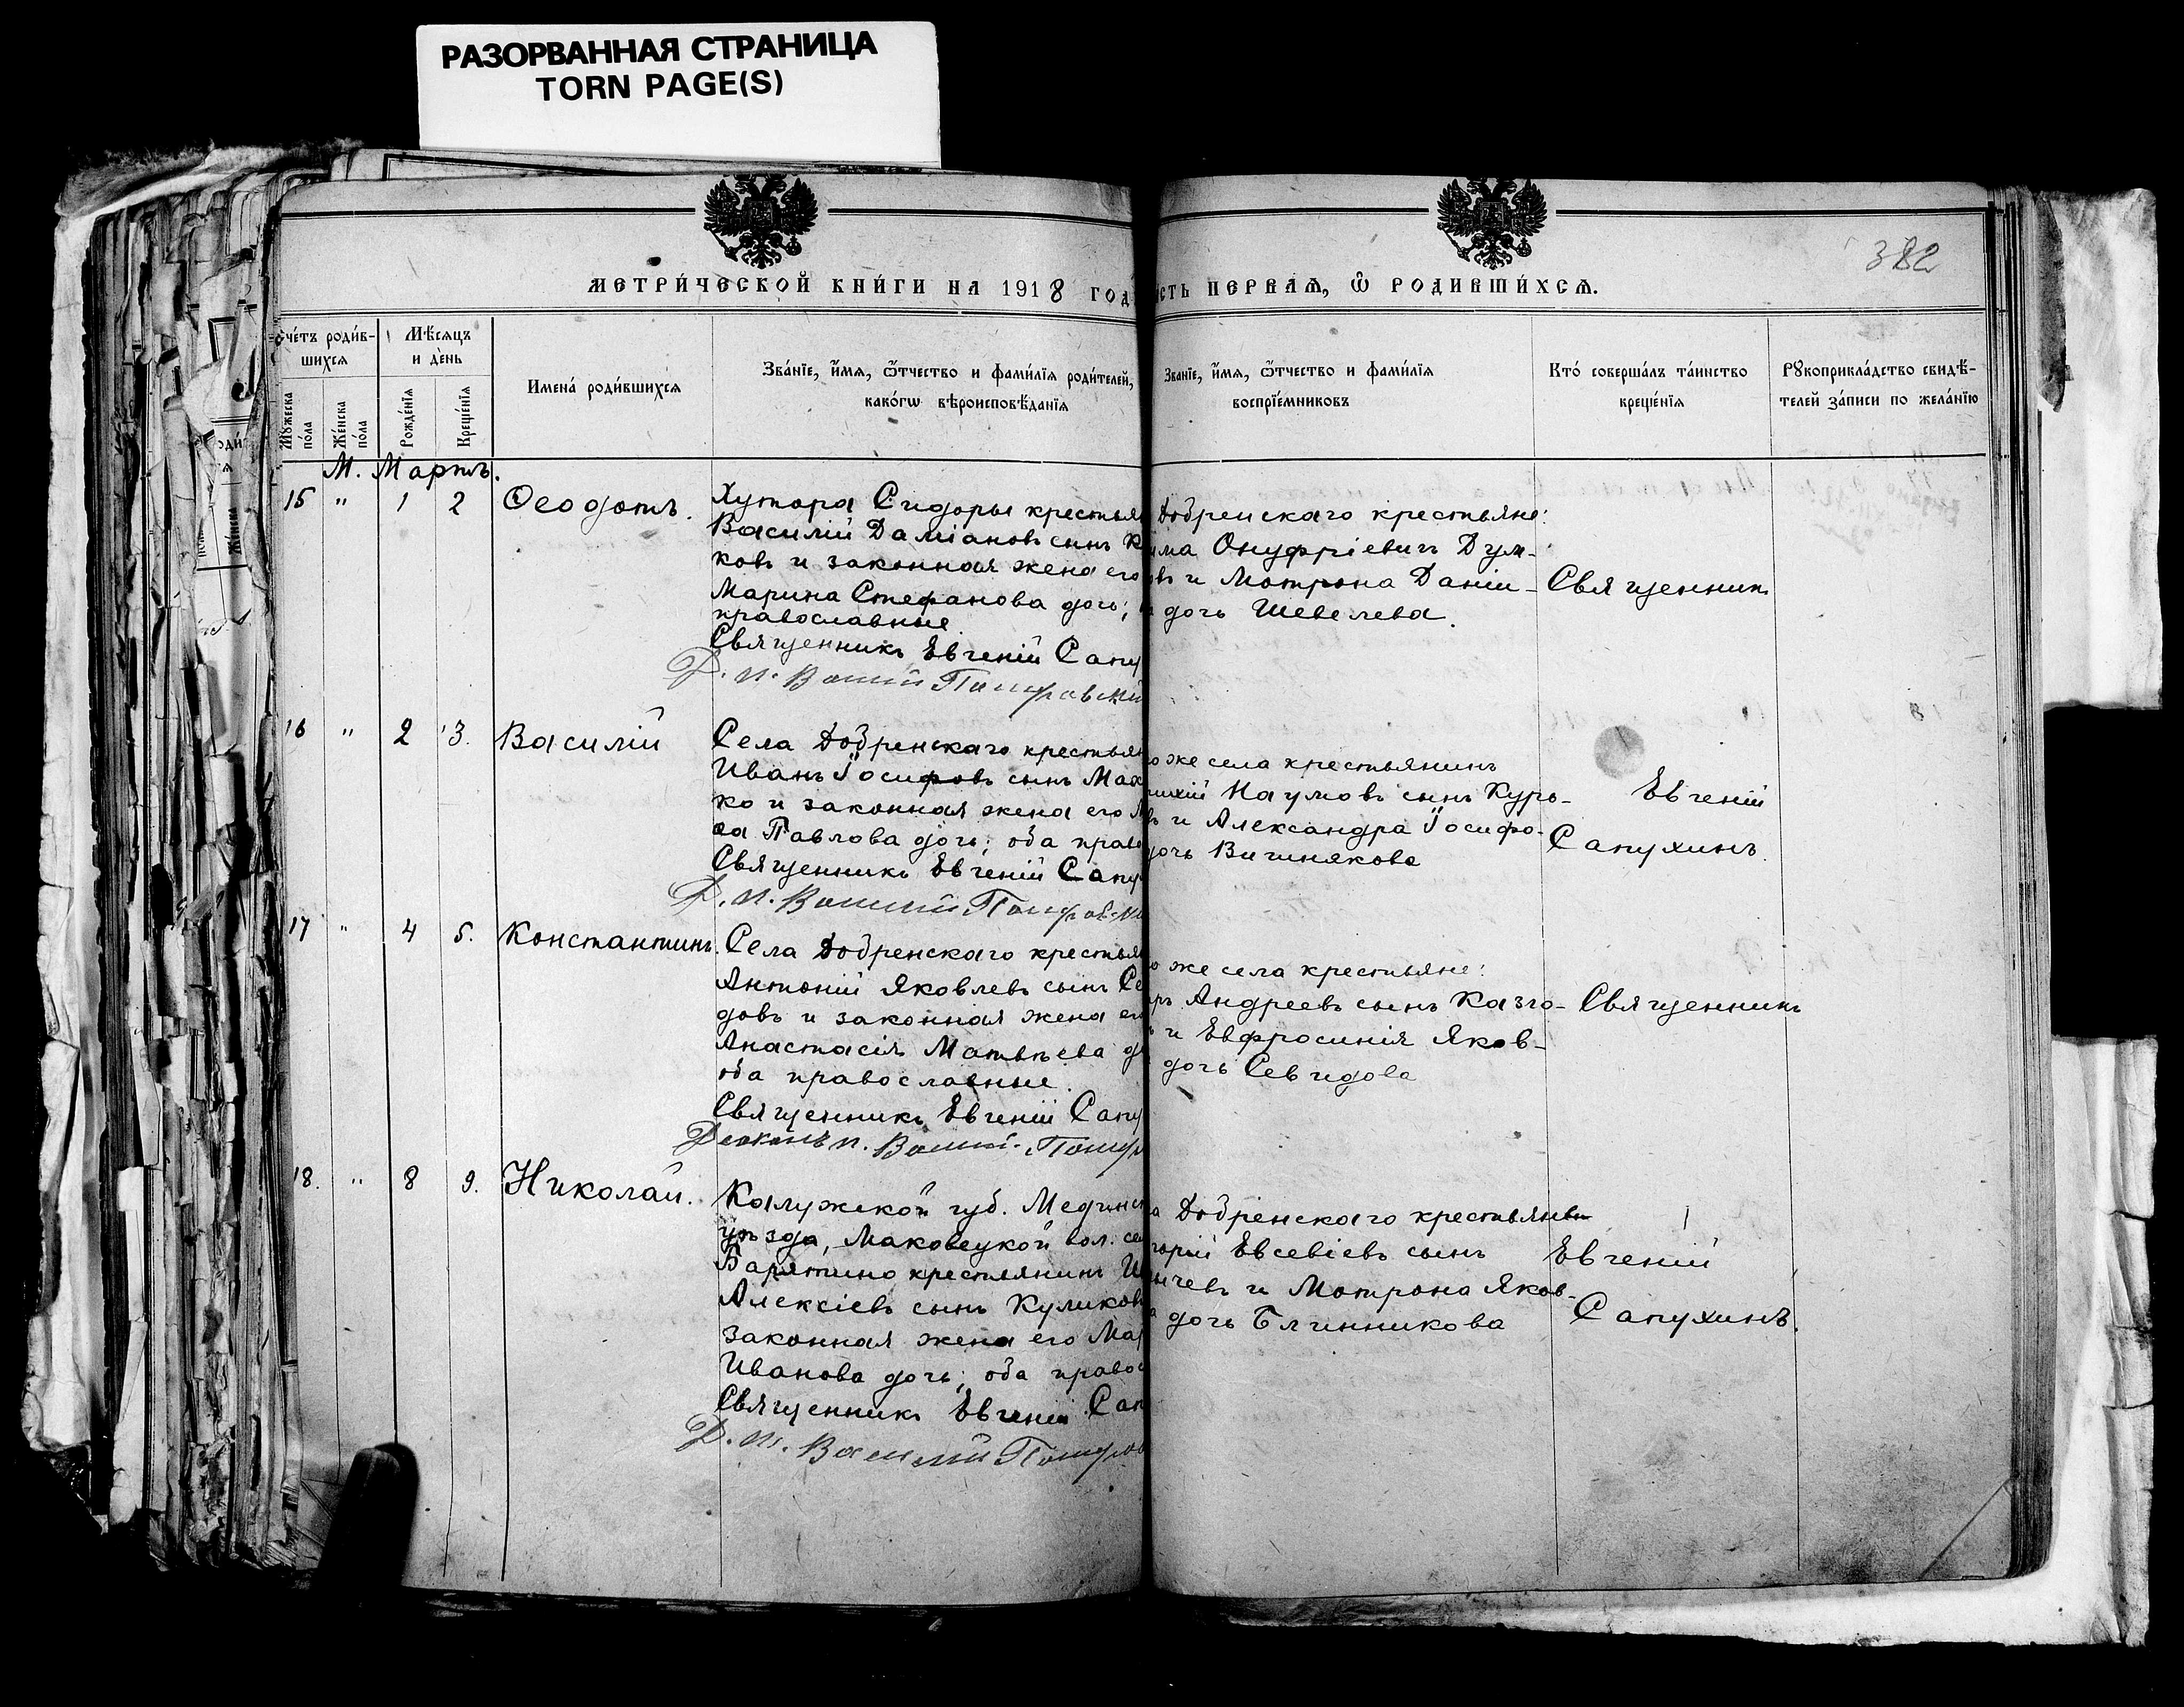 РАЗОРВАННАЯ СТРАНИЦА
TORN PAGE(S)
382
МЕТРИ́ЧЕСКОЙ КНИ́ГИ НА 1918 ГОД
СТЬ ПЕРВАѦ, Ѡ РОДИВШИ́ХСѦ.
Сче́тъ роди́в-
шихсѧ
Мѣ́сѧцъ
и де́нь
Мꙋ́жеска
по́ла
Же́нска
по́ла
Рожде́нїѧ
Креще́нїѧ
Имена́ роди́вшихсѧ
Зва́нїе, и́мѧ, ѻ́тчество и фами́лїѧ роди́телей,
како́гѡ вѣроисповѣ́данїѧ
Зва́нїе, и́мѧ, ѻ́тчество и фами́лїѧ
воспрїе́мниковъ
Кто́ соверша́лъ та́инство
креще́нїѧ
Рꙋкоприкла́дство свидѣ́-
телей за́писи по жела́нїю
М. Мартъ.
15 " 1 2 Ѳеодотъ.
Хутора Сидоры крестья
Василій Даміановъ сынъ К
ковъ и законная жена его
Марина Стефанова дочь;
православные.
Священникъ Евгеній Сапу
Добренскаго крестьяне:
има Онуфріевичъ Дум-
овъ и Мотрона Даніи-
дочь Шевелева.
Священникъ
16 " 2 3. Василій
Села Добренскаго крестья
Иванъ Іосифовъ сынъ Мах
ко и законная жена его
Павлова дочь; оба право
Священникъ Евгеній Сапу
о же села крестьянинъ
Наумовъ сынъ Курь-
ъ и Александра Іосифо-
дочь Вишнякова
Евгеній
Сапухинъ.
17 " 4 5. Константинъ.
Села Добренскаго крестья
Антоній Яковлевъ сынъ Се
довъ и законная жена его
Анастасія Матвѣева до
оба православные.
Священникъ Евгеній Сапу
о же села крестьяне:
ръ Андреевъ сынъ Казго-
ъ и Евфросинія Яков-
дочь Севидова
Священникъ
18. " 8 9. Николай.
Калужской губ. Медынск
уѣзда, Маковецкой вол. се
Барятино крестьянинъ И
Алексіевъ сынъ Куликовъ
законная жена его Мар
Иванова дочь; оба правос
Священникъ Евгеній Сап
а Добренскаго крестьянинъ
горій Евсевіевъ сынъ
ичевъ и Мотрона Яков-
а дочь Блинникова
Евгеній
Сапухинъ.